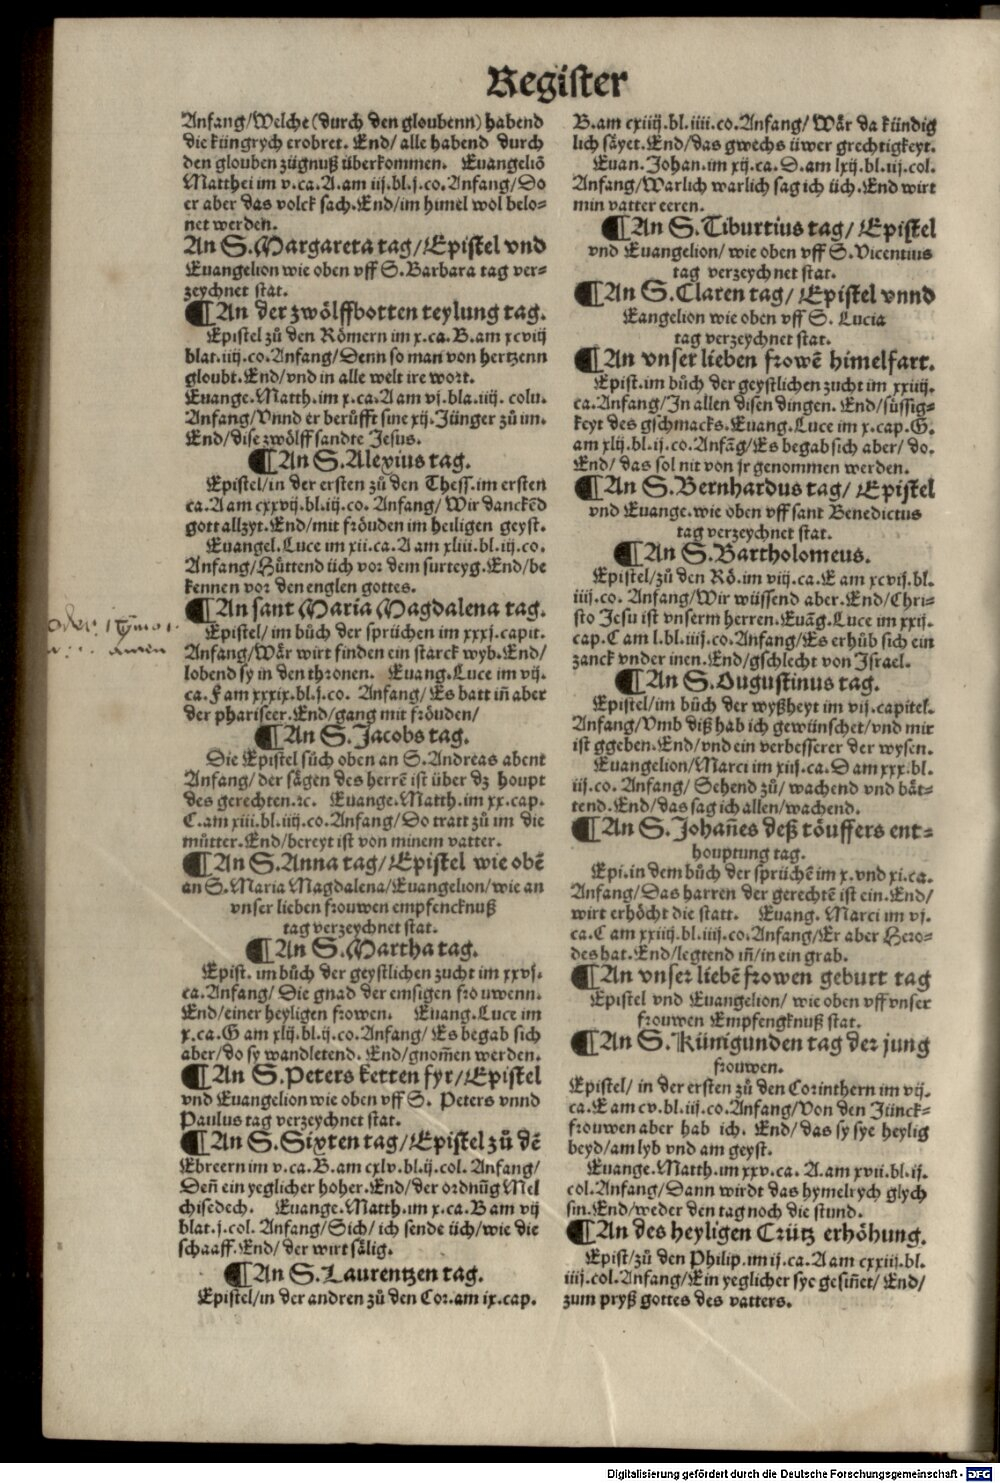 Register
Anfang/Welche (durch den gloubenn) habend
die küngrych erobret. End/ alle habend durch
den glouben zügnuß überkommen. Euangeliō
Matthei im v.ca.A.am iij.bl.j.co.Anfang/Do
er aber das volck sach.End/im himel wol belo=
net werden.
An S.Margareta tag/Epistel vnd
Euangelion wie oben vff S.Barbara tag ver=
zeychnet stat.
¶An der zwölffbotten teylung tag.
Epistel zů den Römern im x.ca.B.am xcviij
blat.iiij.co.Anfang/Denn so man von hertzenn
gloubt.End/vnd in alle welt ire wort.
Euange.Matth.im x.ca.A am vj.bla.iiij. colu.
Anfang/Vnnd er berüfft sine xij.Jünger zů im.
End/dise zwölff sandte Jesus.
¶An S.Alexius tag.
Epistel/in der ersten zů den Thess.im ersten
ca.A am cxxvij.bl.iij.co. Anfang/ Wir danckēd
gott allzyt.End/mit fröuden im heiligen geyst.
Euangel.Luce im xii.ca.A am xliii.bl.iij.co.
Anfang/Hüttend üch vor dem surteyg.End/be
kennen vor den englen gottes.
¶An sant Maria Magdalena tag.
Epistel/ im bůch der sprüchen im xxxj.capit.
Anfang/Wår wirt finden ein starck wyb.End/
lobend sy in den thronen. Euang.Luce im vij.
ca.F am xxxix.bl.j.co. Anfang/Es batt in̄ aber
der phariseer.End/gang mit fröuden/
¶An S.Jacobs tag.
Die Epistel sůch oben an S.Andreas abent
Anfang/ der sågen des herrē ist über dz houpt
des gerechten.ꝛc. Euange.Matth.im xx.cap.
C.am xiii.bl.iiij.co.Anfang/Do tratt zů im die
můtter.End/bereyt ist von minem vatter.
¶An S.Anna tag/Epistel wie obē
an S.Maria Magdalena/Euangelion/wie an
vnser lieben frouwen empfencknuß
tag verzeychnet stat.
¶An S.Martha tag.
Epist. im bůch der geystlichen zucht im xxvj.
ca.Anfang/ Die gnad der emsigen frouwenn.
End/einer heyligen frowen. Euang.Luce im
x.ca.G am xlij.bl.ij.co.Anfang/ Es begab sich
aber/do sy wandletend. End/gnom̄en werden.
¶An S.Peters ketten fyr/Epistel
vnd Euangelion wie oben vff S. Peters vnnd
Paulus tag verzeychnet stat.
¶An S.Sixten tag/Epistel zů dē
Ebreern im v.ca.B.am cxlv.bl.ij.col. Anfang/
Den̄ ein yeglicher hoher.End/der ordnūg Mel
chisedech. Euange.Matth.im x.ca.B am vij
blat.j.col. Anfang/Sich/ ich sende üch/wie die
schaaff.End/ der wirt sålig.
¶An S.Laurentzen tag.
Epistel/in der andren zů den Cor.am ix.cap.
B.am cxiiij.bl.iiii.co.Anfang/ Wår da kündig
lich såyet.End/das gwechs üwer grechtigkeyt.
Euan. Johan.im xij.ca. D.am lxij.bl.iij.col.
Anfang/Warlich warlich sag ich üch.End wirt
min vatter eeren.
¶An S.Tiburtius tag/ Epistel
vnd Euangelion/ wie oben vff S.Vicentius
tag verzeychnet stat.
¶An S.Claren tag/ Epistel vnnd
Eangelion wie oben vff S. Lucia
tag verzeychnet stat.
¶An vnser lieben frowē himelfart.
Epist.im bůch der geystlichen zucht im xxiiij.
ca.Anfang/In allen disen dingen. End/süssig=
keyt des gschmacks.Euang.Luce im x.cap.G.
am xlij.bl.ij.co.Anfāg/Es begab sich aber/ do.
End/ das sol nit von jr genommen werden.
¶An S.Bernhardus tag/ Epistel
vnd Euange.wie oben vff sant Benedictus
tag verzeychnet stat.
¶An S.Bartholomeus.
Epistel/zů den Rö.im viij.ca.E am xcvij.bl.
iiij.co. Anfang/Wir wüssend aber.End/Chri=
sto Jesu ist vnserm herren.Euāg.Luce im xxij.
cap.C am l.bl.iiij.co.Anfang/Es erhůb sich ein
zanck vnder inen.End/gschlecht von Israel.
¶An S.Ougustinus tag.
Epistel/im bůch der wyßheyt im vij.capitel.
Anfang/Vmb diß hab ich gewünschet/vnd mir
ist ggeben.End/vnd ein verbesserer der wysen.
Euangelion/Marci im xiij.ca.D am xxx.bl.
iij.co. Anfang/ Sehend zů/ wachend vnd båt=
tend.End/das sag ich allen/wachend.
¶An S.Johan̄es deß töuffers ent=
houptung tag.
Epi.in dem bůch der sprüchē im x.vnd xi.ca.
Anfang/Das harren der gerechtē ist ein.End/
wirt erhöcht die statt. Euang. Marci im vj.
ca.C am xxiiij.bl.iiij.co.Anfang/Er aber Hero=
des hat.End/legtend in̄/in ein grab.
¶An vnser liebē frowen geburt tag
Epistel vnd Euangelion/ wie oben vff vnser
frouwen Empfengknuß stat.
¶An S.Künigunden tag der jung
frouwen.
Epistel/ in der ersten zů den Corinthern im vij.
ca.E am cv.bl.iij.co.Anfang/Von den Jünck=
frouwen aber hab ich. End/ das sy sye heylig
beyd/am lyb vnd am geyst.
Euange.Matth.im xxv.ca. A.am xvii.bl.ij.
col.Anfang/Dann wirdt das hymelrych glych
sin.End/weder den tag noch die stund.
¶An des heyligen Crütz erhöhung.
Epist/zů den Philip.im ij.ca.A am cxxiij.bl.
iiij.col.Anfang/Ein yeglicher sye gesin̄et/ End/
zum pryß gottes des vatters.
Digitalisierung gefördert durch die Deutsche Forschungsgemeinschaft - DFG